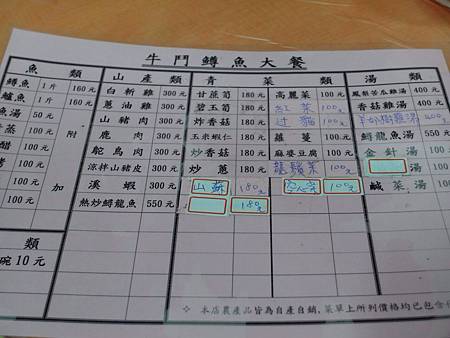 牛鬥鱒魚大餐
魚 類 山 產 類 青 菜 類 湯 類
鱒魚 1片 160元 白斬雞 300元 甘蔗筍 180元 高麗菜 100元 鳳梨苦瓜雞湯 400元
鱸魚 1片 160元 蔥油雞 300元 碧玉筍 180元 紅菜 100元 香菇雞湯 400元
魚湯 50元 山豬肉 300元 炸香菇 180元 过貓 100元
蒸 100元 附 鹿肉 300元 玉米蝦仁 180元 蘿蔓 100元 鱘龍魚湯 550元
醋 100元 鴕鳥肉 300元 炒香菇 180元 麻婆豆腐 100元 金針湯 100元
烤 100元 涼拌山豬皮 300元 炒蔥 180元 龍鬚菜 100元 湯 100元
100元 加 溪蝦 300元 山蘇 180元 100元 鹹菜湯 100元
100元 熱炒鱘龍魚 550元 180元
類
碗10元
◇ 本店農產品皆為自產自銷,菜單上所列價格均已包含